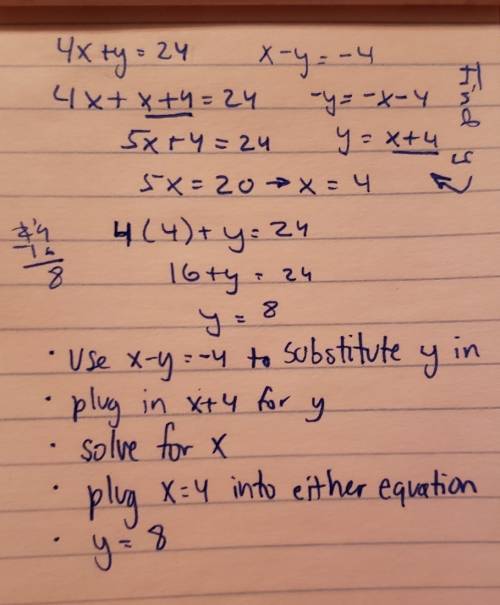 4x+y=24 x-y=-4
4x+x+4=24 -y=-x-4
5x+4=24 y=x+4
5x=20→x=4
4(4)+y=24
24
-16
8
16+y=24
y=8
· Use x-y=-4 to substitute y in
· plug in x+4 for y
· solve for x
· plug x=4 into either equation
· y=8